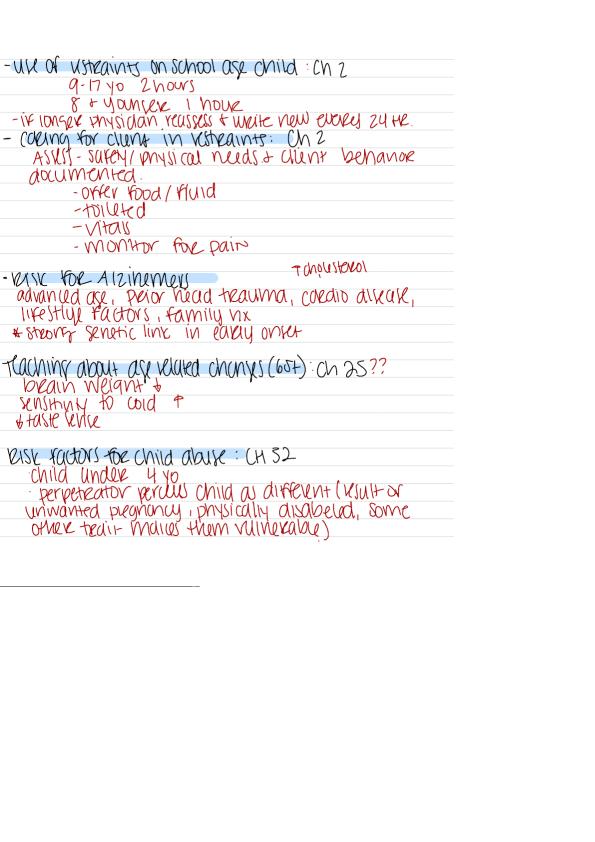 - use of restraints on school age child : Ch 2
9-17 yo 2 hours
8 & younger 1 hour
- if longer physician reassess & write new every 24 HR.
- caring for client in restraints: Ch 2
Assess - safety/physical needs & client behavior
documented.
- offer food/fluid
- toileted
- vitals
- monitor for pain
↑cholesterol
- RISK FOR Alzihemers
advanced age, prior head trauma, cardio disease,
lifestyle factors, family hx
* strong genetic link in early onset
Teaching about age related changes (65+) : Ch 25??
brain weight ↓
sensitivity to cold ↑
↓ taste sense
Risk factors for child abuse : CH 32
child under 4 yo
· perpetrator percieves child as different (result of
unwanted pregnancy, physically disabled, some
other trait makes them vulnerable)